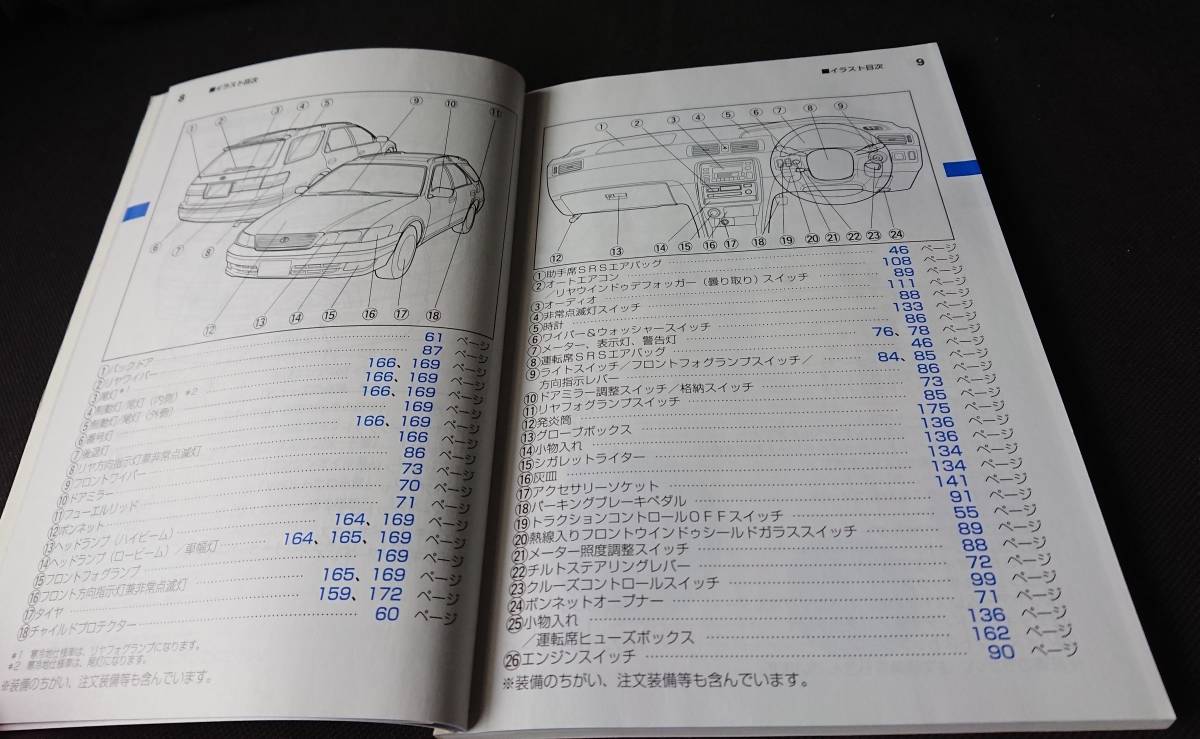 8 ■イラスト目次
① ② ③ ④ ⑤ ⑨ ⑩ ⑪
⑥ ⑦ ⑧
⑫ ⑬ ⑭ ⑮ ⑯ ⑰ ⑱
①バックドア 61 ページ
②リヤワイパー 87 ページ
③尾灯*1 166、169 ページ
④制動灯/尾灯(内側) *2 166、169 ページ
⑤制動灯/尾灯(外側) 166、169 ページ
⑥番号灯 169 ページ
⑦後退灯 166、169 ページ
⑧リヤ方向指示灯兼非常点滅灯 166 ページ
⑨フロントワイパー 86 ページ
⑩ドアミラー 73 ページ
⑪フューエルリッド 70 ページ
⑫ボンネット 71 ページ
⑬ヘッドランプ(ハイビーム) 164、169 ページ
⑭ヘッドランプ(ロービーム)/車幅灯 164、165、169 ページ
⑮フロントフォグランプ 169 ページ
⑯フロント方向指示灯兼非常点滅灯 165、169 ページ
⑰タイヤ 159、172 ページ
⑱チャイルドプロテクター 60 ページ
*1 寒冷地仕様車は、リヤフォグランプになります。
*2 寒冷地仕様車は、尾灯になります。
※装備のちがい、注文装備等も含んでいます。
■イラスト目次 9
① ② ③ ④ ⑤ ⑥ ⑦ ⑧ ⑨
⑫ ⑬ ⑭ ⑮ ⑯ ⑰ ⑱ ⑲ ⑳ ㉑ ㉒ ㉓ ㉔
①助手席SRSエアバッグ 46 ページ
②オートエアコン 108 ページ
/リヤウインドゥデフォッガー(曇り取り)スイッチ 89 ページ
③オーディオ 111 ページ
④非常点滅灯スイッチ 88 ページ
⑤時計 133 ページ
⑥ワイパー&ウォッシャースイッチ 86 ページ
⑦メーター、表示灯、警告灯 76、78 ページ
⑧運転席SRSエアバッグ 46 ページ
⑨ライトスイッチ/フロントフォグランプスイッチ/ 84、85 ページ
方向指示レバー 86 ページ
⑩ドアミラー調整スイッチ/格納スイッチ 73 ページ
⑪リヤフォグランプスイッチ 85 ページ
⑫発炎筒 175 ページ
⑬グローブボックス 136 ページ
⑭小物入れ 136 ページ
⑮シガレットライター 134 ページ
⑯灰皿 134 ページ
⑰アクセサリーソケット 141 ページ
⑱パーキングブレーキペダル 91 ページ
⑲トラクションコントロールOFFスイッチ 55 ページ
⑳熱線入りフロントウインドゥシールドガラススイッチ 89 ページ
㉑メーター照度調整スイッチ 88 ページ
㉒チルトステアリングレバー 72 ページ
㉓クルーズコントロールスイッチ 99 ページ
㉔ボンネットオープナー 71 ページ
㉕小物入れ 136 ページ
/運転席ヒューズボックス 162 ページ
㉖エンジンスイッチ 90 ページ
※装備のちがい、注文装備等も含んでいます。